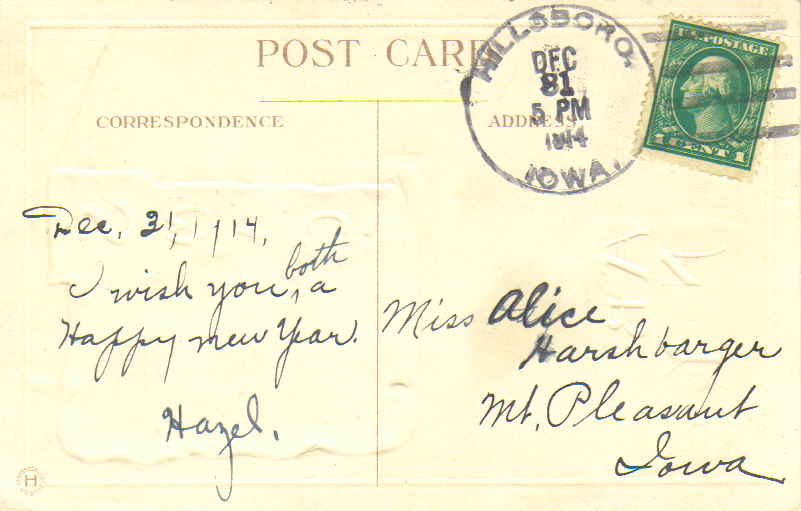 POST CARD
HILLSBORO,
DEC
31
5 PM
1914
IOWA.
U.S. POSTAGE
1 CENT 1
CORRESPONDENCE
ADDRESS
Dec. 31, 1914.
I wish you both a
Happy new Year.
Hazel.
Miss Alice
Harshbarger
Mt. Pleasant
Iowa
H